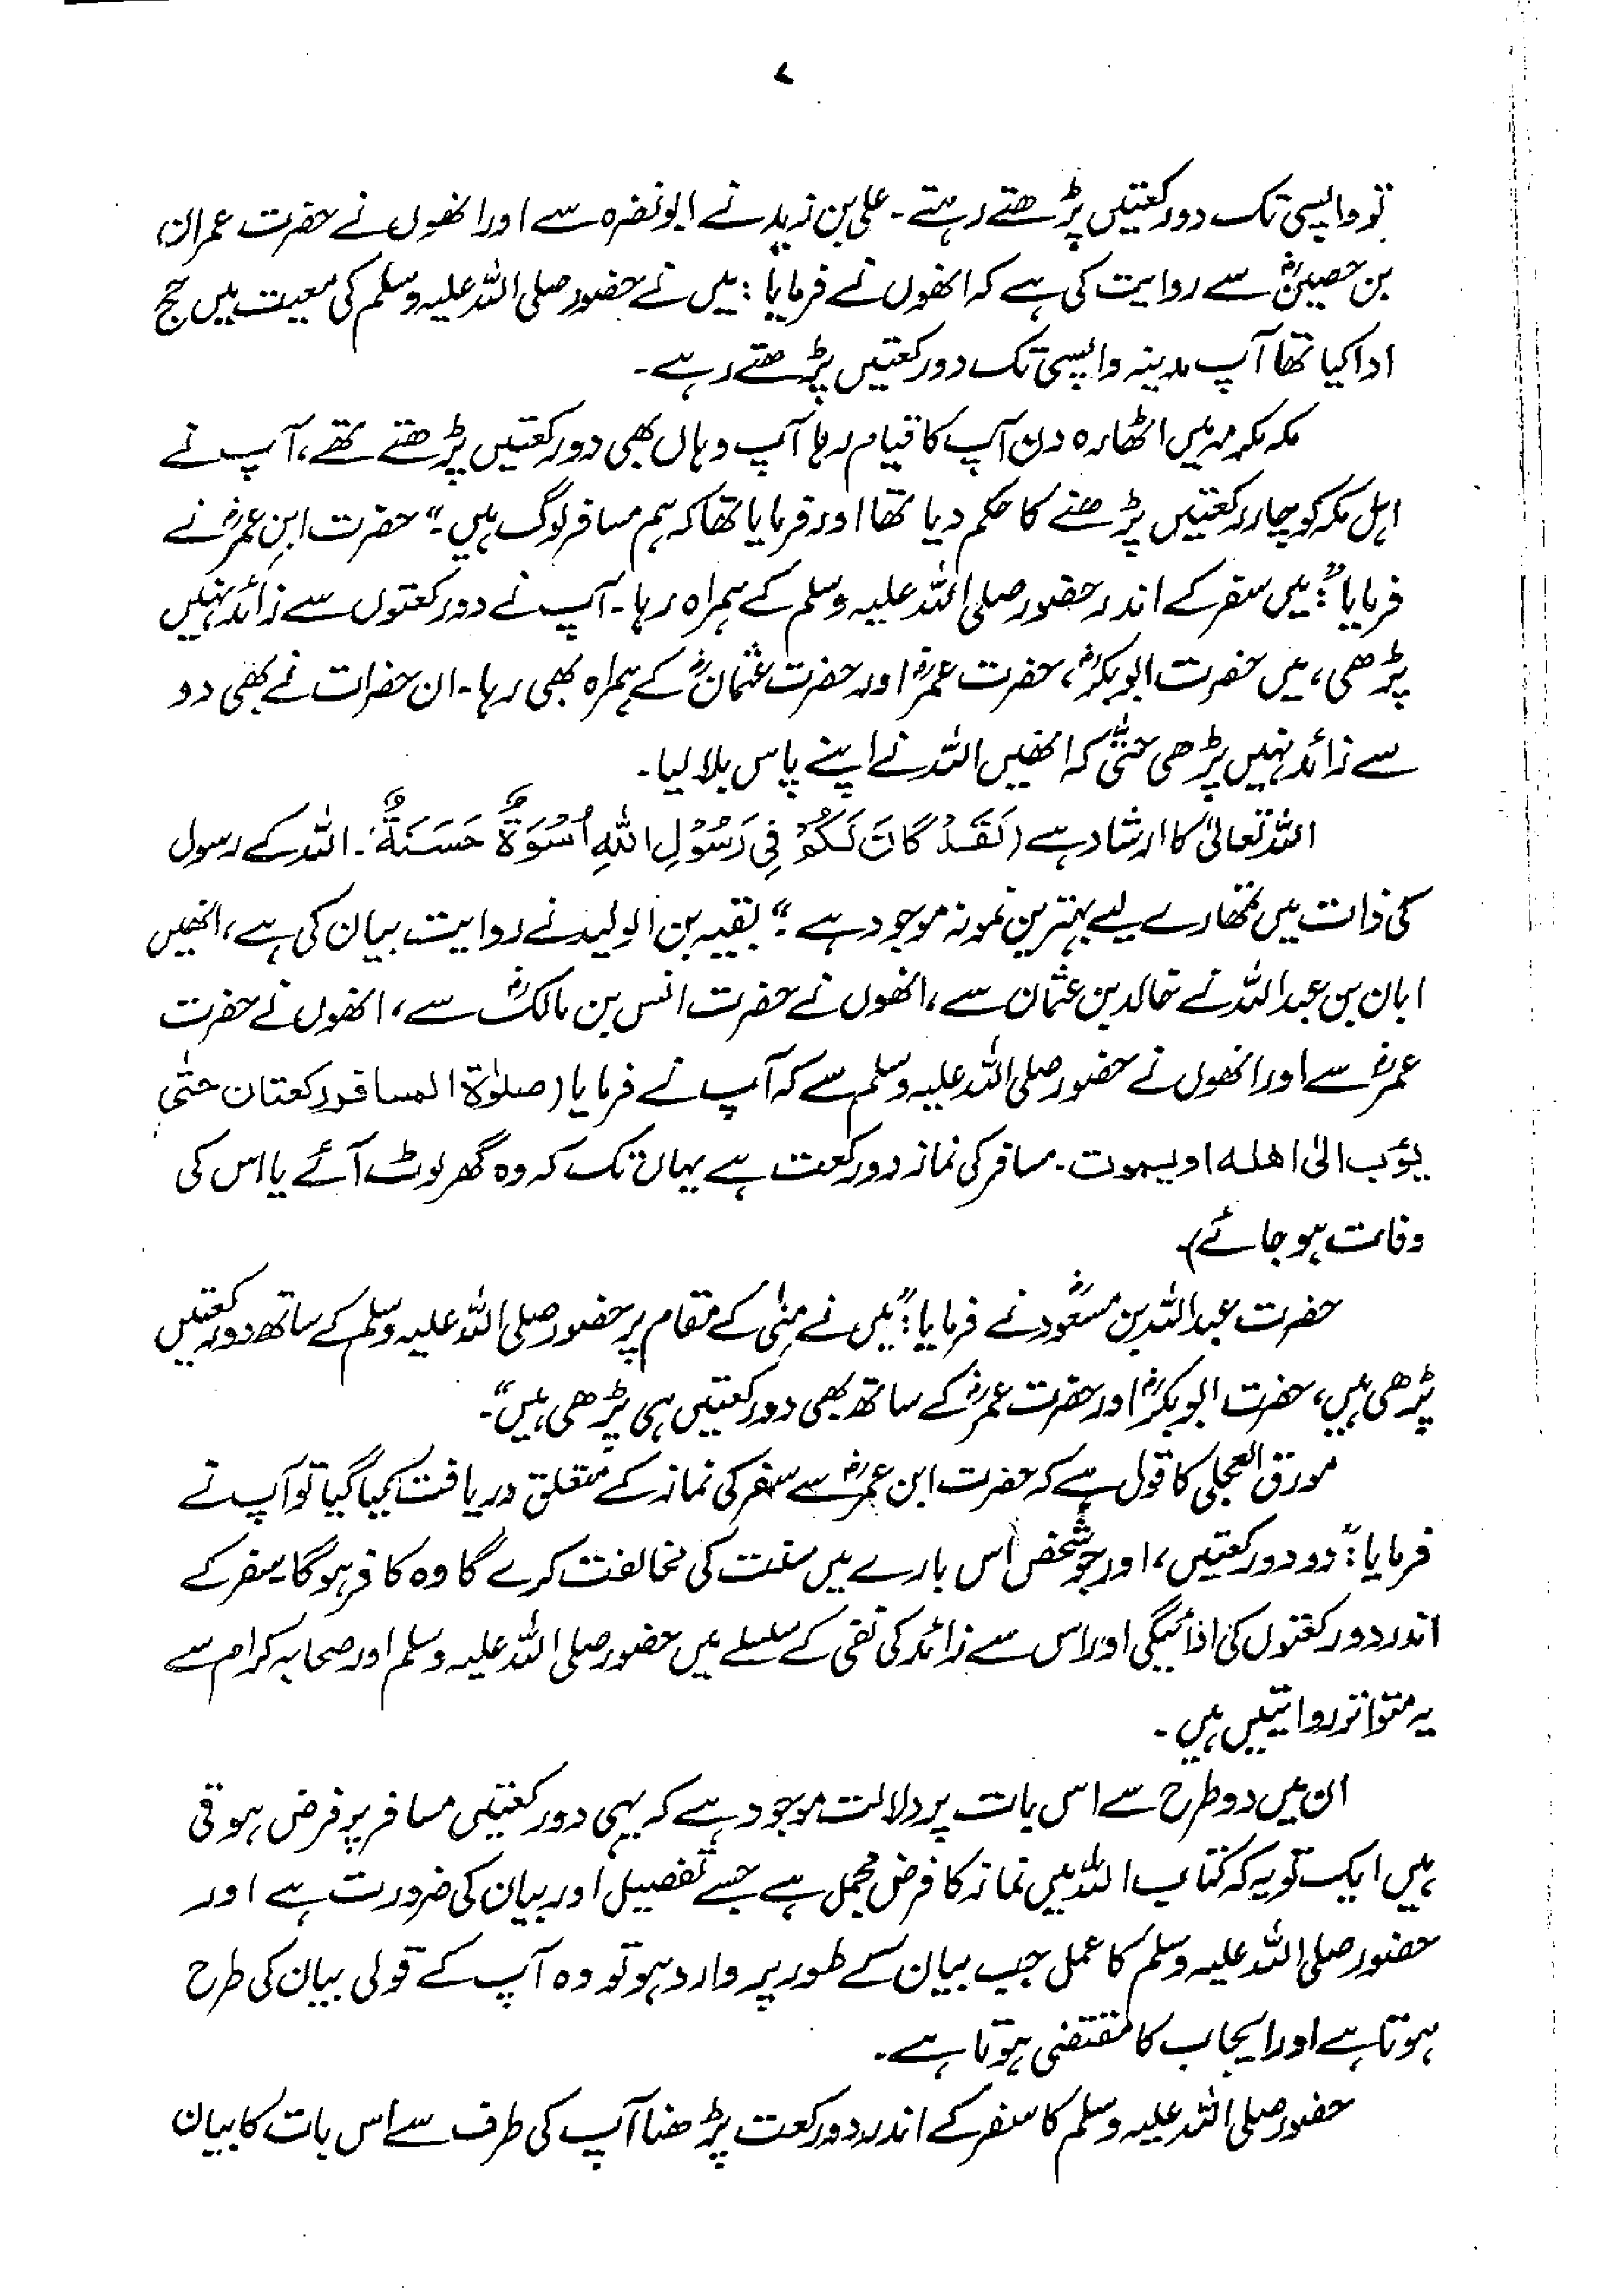 ۷
تو واپسی تک دو رکعتیں پڑھتے رہتے۔ علی بن زید نے ابو نضرہ سے اور انھوں نے حضرت عمران
بن حصینؓ سے روایت کی ہے کہ انھوں نے فرمایا: میں نے حضور صلی اللہ علیہ وسلم کی معیت میں حج
ادا کیا تھا آپ مدینہ واپسی تک دو رکعتیں پڑھتے رہے۔
مکہ مکرمہ میں اٹھارہ دن آپ کا قیام رہا آپ وہاں بھی دو رکعتیں پڑھتے تھے، آپ نے
اہل مکہ کو چار رکعتیں پڑھنے کا حکم دیا تھا اور فرمایا تھا کہ ہم مسافر لوگ ہیں۔“ حضرت ابنِ عمرؓ نے
فرمایا:”میں سفر کے اندر حضور صلی اللہ علیہ وسلم کے ہمراہ رہا۔ آپ نے دو رکعتوں سے زائد نہیں
پڑھی، میں حضرت ابوبکرؓ، حضرت عمرؓ اور حضرت عثمانؓ کے ہمراہ بھی رہا۔ ان حضرات نے بھی دو
سے زائد نہیں پڑھی حتّٰی کہ انھیں اللہ نے اپنے پاس بلا لیا۔
اللہ تعالیٰ کا ارشاد ہے (لَقَدْ كَانَ لَكُمْ فِي رَسُوْلِ اللهِ اُسْوَةٌ حَسَنَةٌ۔ اللہ کے رسول
کی ذات میں تمھارے لیے بہترین نمونہ موجود ہے۔“ بقیہ بن الولید نے روایت بیان کی ہے، انھیں
ابان بن عبداللہ نے خالد بن عثمان سے، انھوں نے حضرت انس بن مالکؓ سے، انھوں نے حضرت
عمرؓ سے اور انھوں نے حضور صلی اللہ علیہ وسلم سے کہ آپ نے فرمایا (صلوٰة المسافر رکعتان حتّٰی
یؤب الیٰ اھلہ او یموت۔ مسافر کی نماز دو رکعت ہے یہاں تک کہ وہ گھر لوٹ آئے یا اس کی
وفات ہو جائے)۔
حضرت عبداللہ بن مسعودؓ نے فرمایا:”میں نے منیٰ کے مقام پر حضور صلی اللہ علیہ وسلم کے ساتھ دو رکعتیں
پڑھی ہیں، حضرت ابوبکرؓ اور حضرت عمرؓ کے ساتھ بھی دو رکعتیں ہی پڑھی ہیں“۔
مورق العجلی کا قول ہے کہ حضرت ابن عمرؓ سے سفر کی نماز کے متعلق دریافت کیا گیا تو آپ نے
فرمایا:”دو دو رکعتیں، اور جو شخص اس بارے میں سنت کی مخالفت کرے گا وہ کافر ہوگا۔ سفر کے
اندر دو رکعتوں کی ادائیگی اور اس سے زائد کی نفی کے سلسلے میں حضور صلی اللہ علیہ وسلم اور صحابہ کرام سے
یہ متواتر روایتیں ہیں۔
ان میں دو طرح سے اس بات پر دلالت موجود ہے کہ یہی دو رکعتیں مسافر پر فرض ہوتی
ہیں ایک تو یہ کہ کتاب اللہ میں نماز کا فرض مجمل ہے جسے تفصیل اور بیان کی ضرورت ہے اور
حضور صلی اللہ علیہ وسلم کا عمل جب بیان کے طور پر وارد ہو تو وہ آپ کے قولی بیان کی طرح
ہوتا ہے اور ایجاب کا مقتضی ہوتا ہے۔
حضور صلی اللہ علیہ وسلم کا سفر کے اندر دو رکعت پڑھنا آپ کی طرف سے اس بات کا بیان